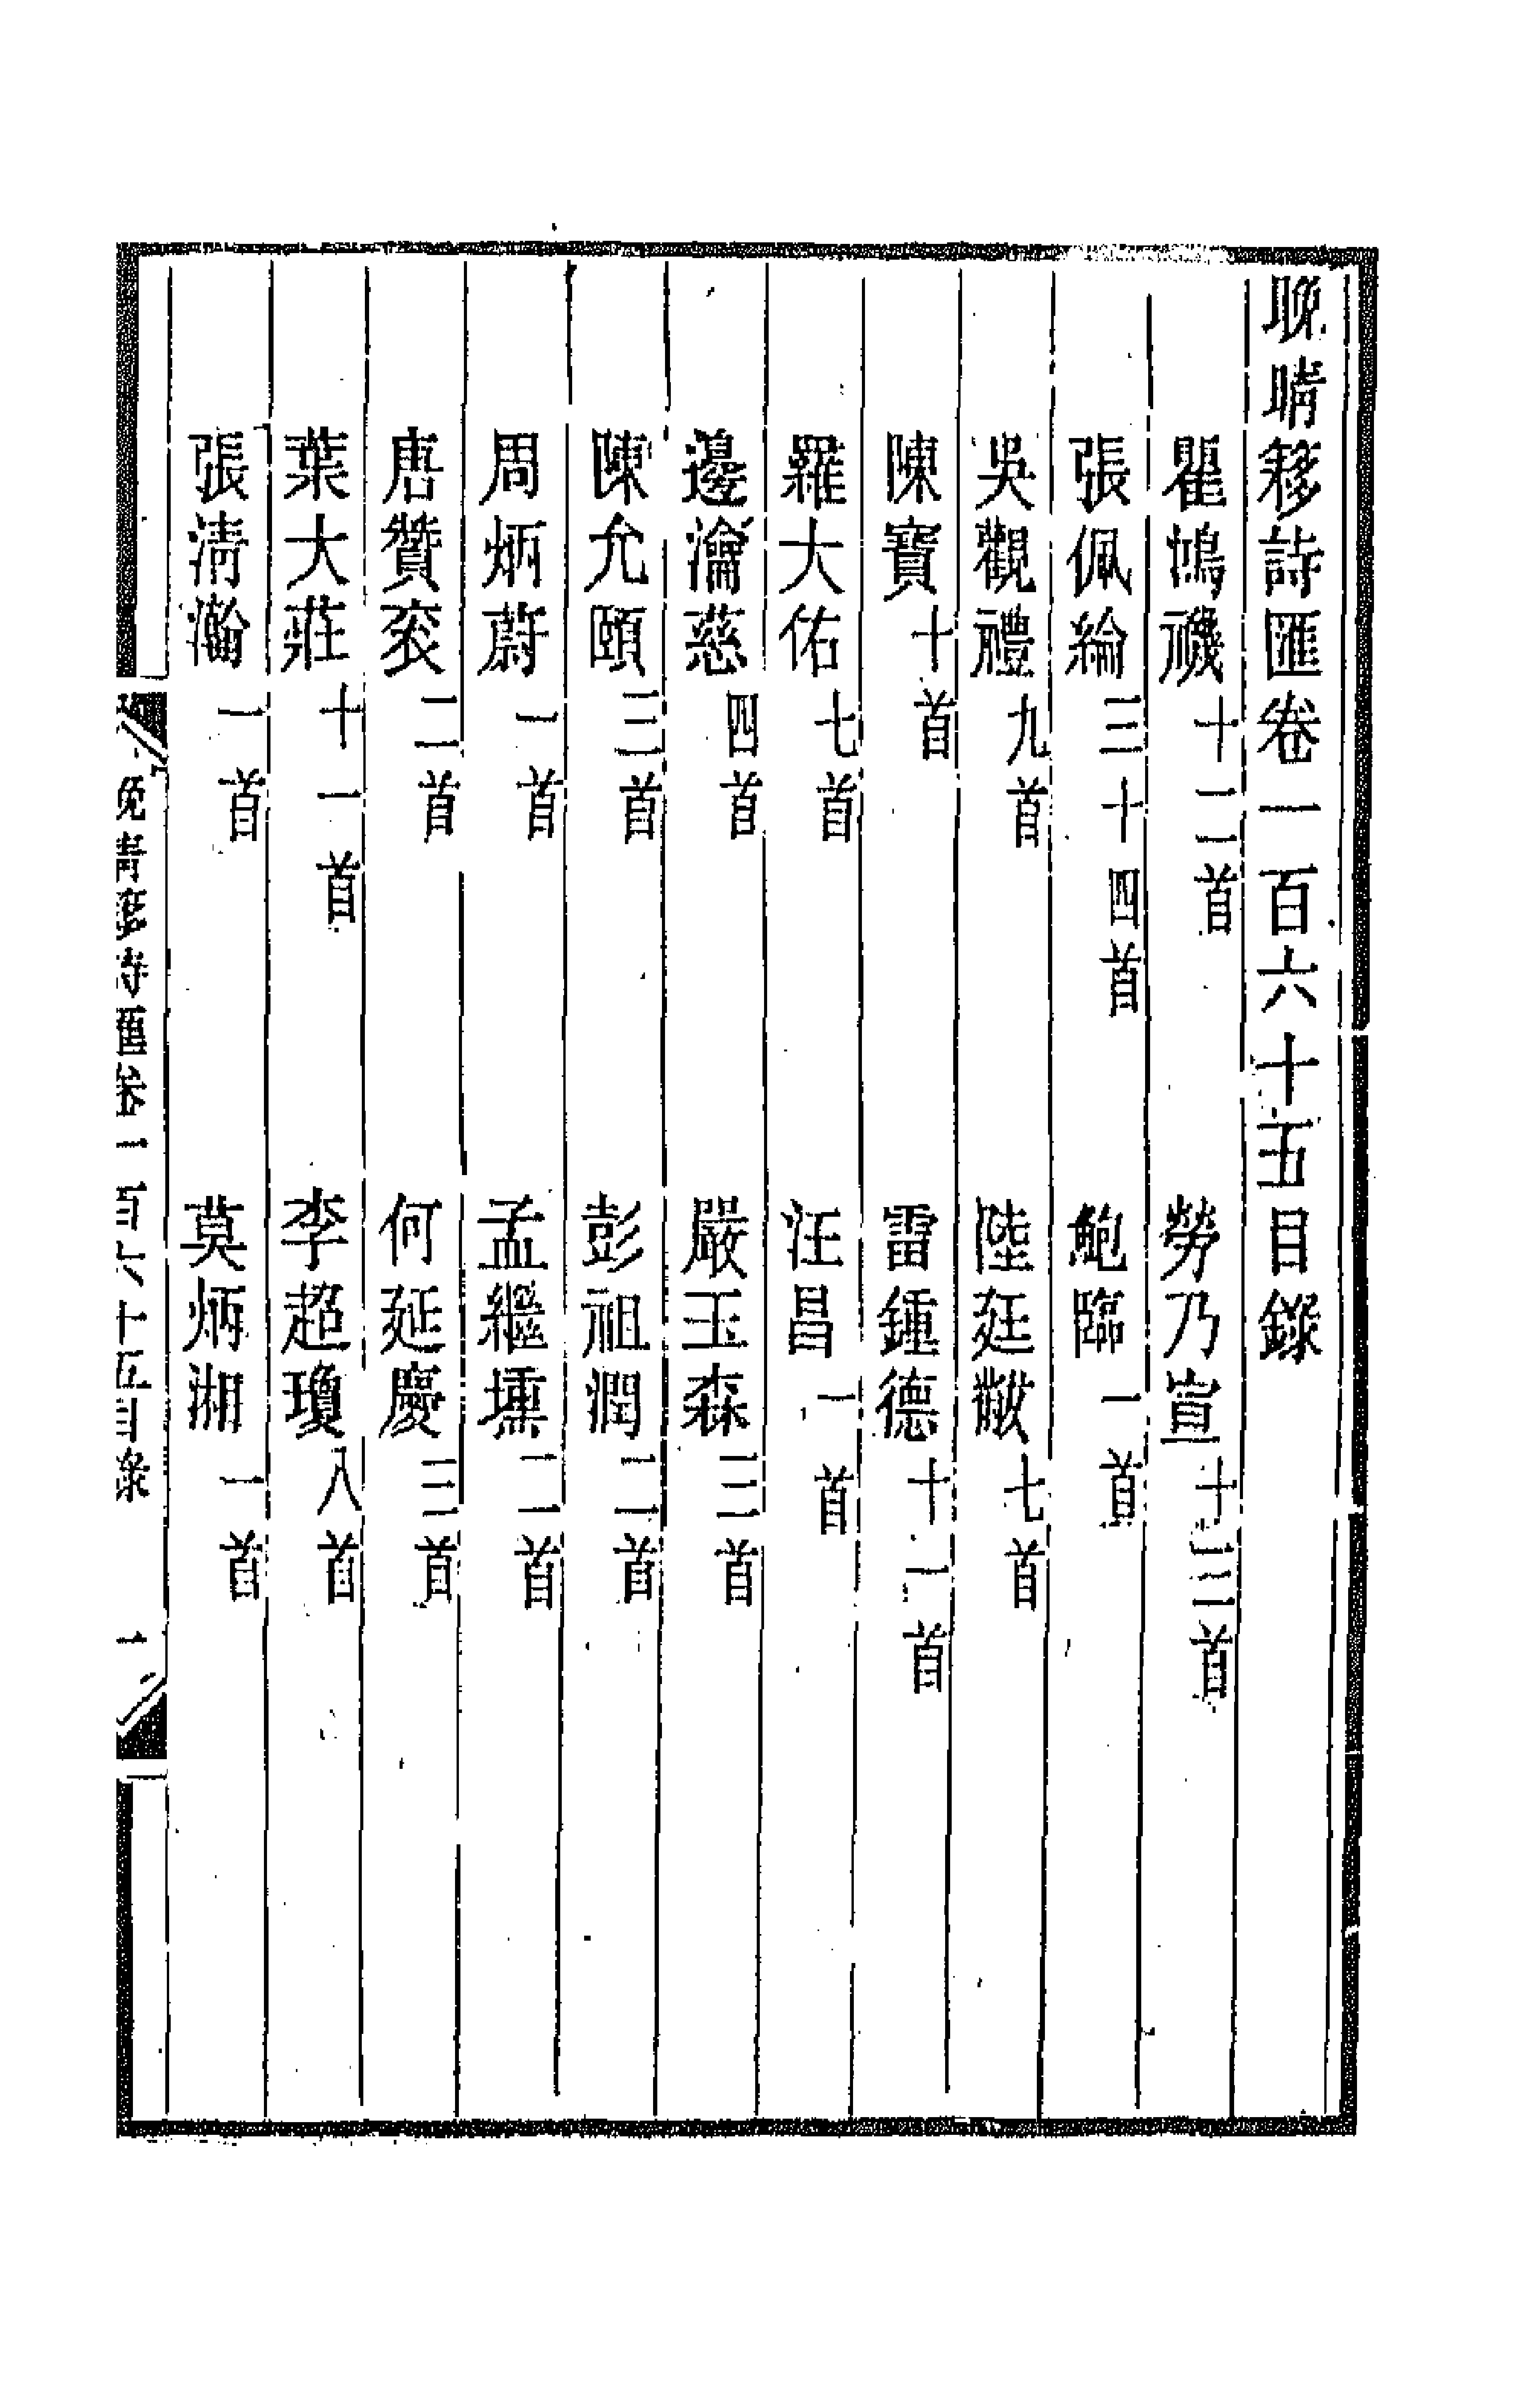 晚晴簃詩匯卷一百六十五目錄
瞿鴻禨十二首 勞乃宣十三首
張佩綸三十四首 鮑臨一首
吳觀禮九首 陸廷黻七首
陳寶十首 雷鍾德十一首
羅大佑七首 汪昌一首
邊瀹慈四首 嚴玉森三首
陳允頤三首 彭祖潤二首
周炳蔚一首 孟繼壎二首
唐贊袞二首 何延慶三首
葉大莊十一首 李超瓊八首
張清瀚一首 莫炳湘一首
晚晴簃詩匯卷一百六十五目錄 一